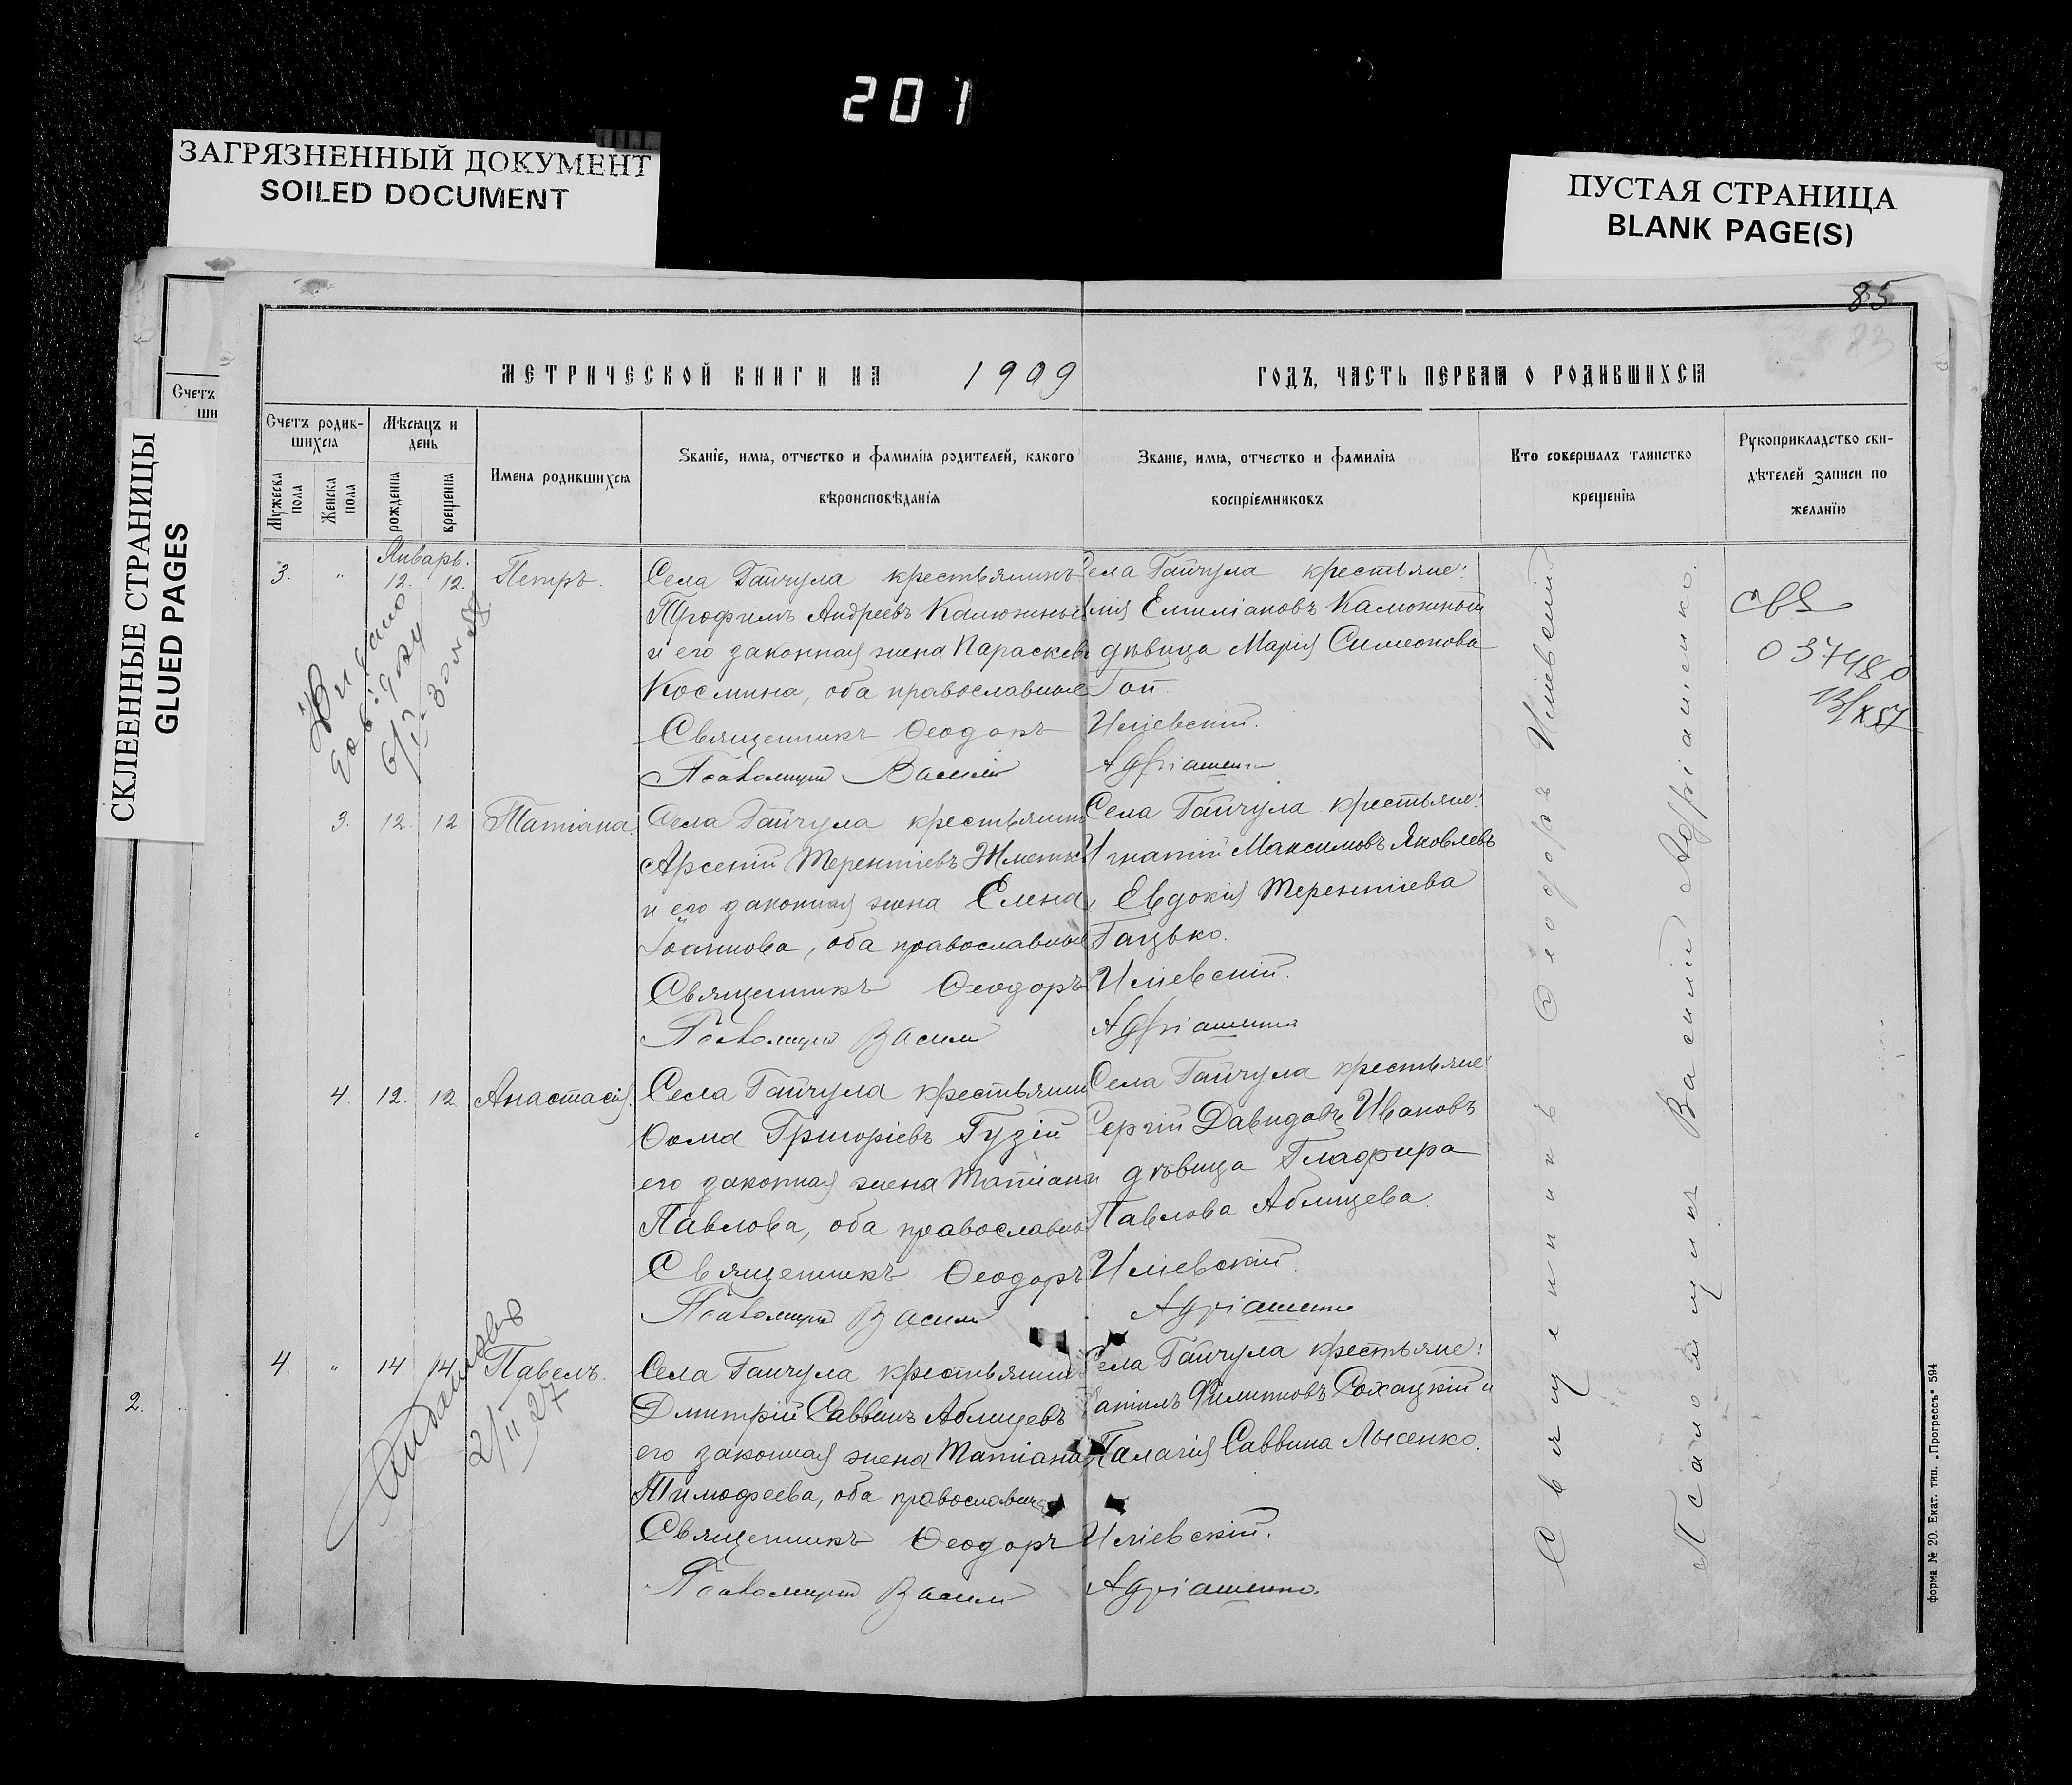 201
ЗАГРЯЗНЕННЫЙ ДОКУМЕНТ
SOILED DOCUMENT
ПУСТАЯ СТРАНИЦА
BLANK PAGE(S)
СКЛЕЕННЫЕ СТРАНИЦЫ
GLUED PAGES
85
Счетъ
ши
2.
МЕТРИЧЕСКОЙ КНИГИ НА 1909 ГОДЪ, ЧАСТЬ ПЕРВАЯ О РОДИВШИХСЯ
Счетъ родив-
шихся
Мужеска пола
Женска пола
Мѣсяцъ и
день
рожденія
крещенія
Имена родившихся
Званіе, имя, отчество и фамилія родителей, какого
вѣроисповѣданія
Званіе, имя, отчество и фамилія
воспріемниковъ
Кто совершалъ таинство
крещенія
Рукоприкладство сви-
дѣтелей записи по
желанію
Январь.
3. " 12. 12. Петръ.
Села Гайчула крестьянинъ
Трофимъ Андреевъ Калюжный
и его законная жена Параскева
Космина, оба православные
Священникъ Ѳеодоръ
Псаломщикъ Василій
Села Гайчула крестьяне:
Емиліановъ Калюжный
дѣвица Марія Симеонова
Гоп
Иліевскій.
Адріашенко
Выдано
037480
13/X 57
3. 12. 12. Татіана.
Села Гайчула крестьянинъ
Арсеній Терентіевъ
и его законная жена Елена
Іоаннова, оба православные
Священникъ Ѳеодоръ
Псаломщикъ Василій
Села Гайчула крестьяне:
Игнатій Максимовъ Яковлевъ
Евдокія Терентіева
Гацько.
Иліевскій.
Адріашенко
4. 12. 12. Анастасія.
Села Гайчула крестьянинъ
Ѳома Григоріевъ Гузій
его законная жена Татіана
Павлова, оба православные
Священникъ Ѳеодоръ
Псаломщикъ Василій
Села Гайчула крестьяне:
Сергій Давидовъ Ивановъ
и дѣвица Глафира
Павлова Аблицева.
Иліевскій.
Адріашенко
4. " 14 14 Павелъ.
2/II 27
Села Гайчула крестьянинъ
Дмитрій Саввинъ Аблицевъ
его законная жена Татіана
Тимофеева, оба православные
Священникъ Ѳеодоръ
Псаломщикъ Василій
Села Гайчула крестьяне:
Филипповъ Сохацкій и
Пелагія Саввина Лысенко.
Иліевскій.
Адріашенко.
Священникъ Ѳеодоръ Иліевскій
Псаломщикъ Василій Адріашенко.
форма № 20. Екат. тип. „Прогрессъ" 594